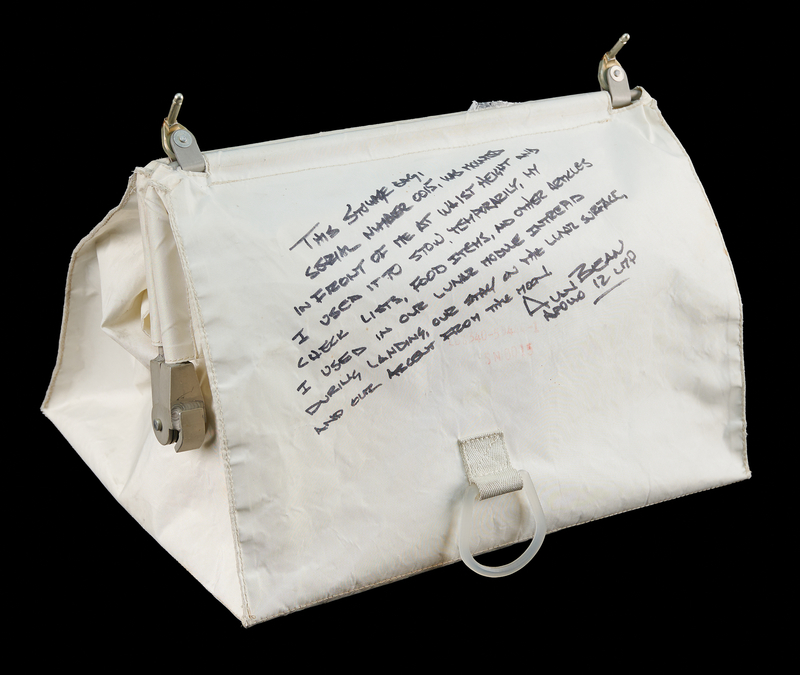 THIS STOWAGE BAG,
SERIAL NUMBER 0015, WAS MOUNTED
IN FRONT OF ME AT WAIST HEIGHT AND
I USED IT TO STOW, TEMPORARILY, MY
CHECK LISTS, FOOD ITEMS, AND OTHER ARTICLES
I USED IN OUR LUNAR MODULE INTREPID
DURING LANDING, OUR STAY ON THE LUNAR SURFACE,
AND OUR ASCENT FROM THE MOON.
ALAN BEAN
APOLLO 12 LMP